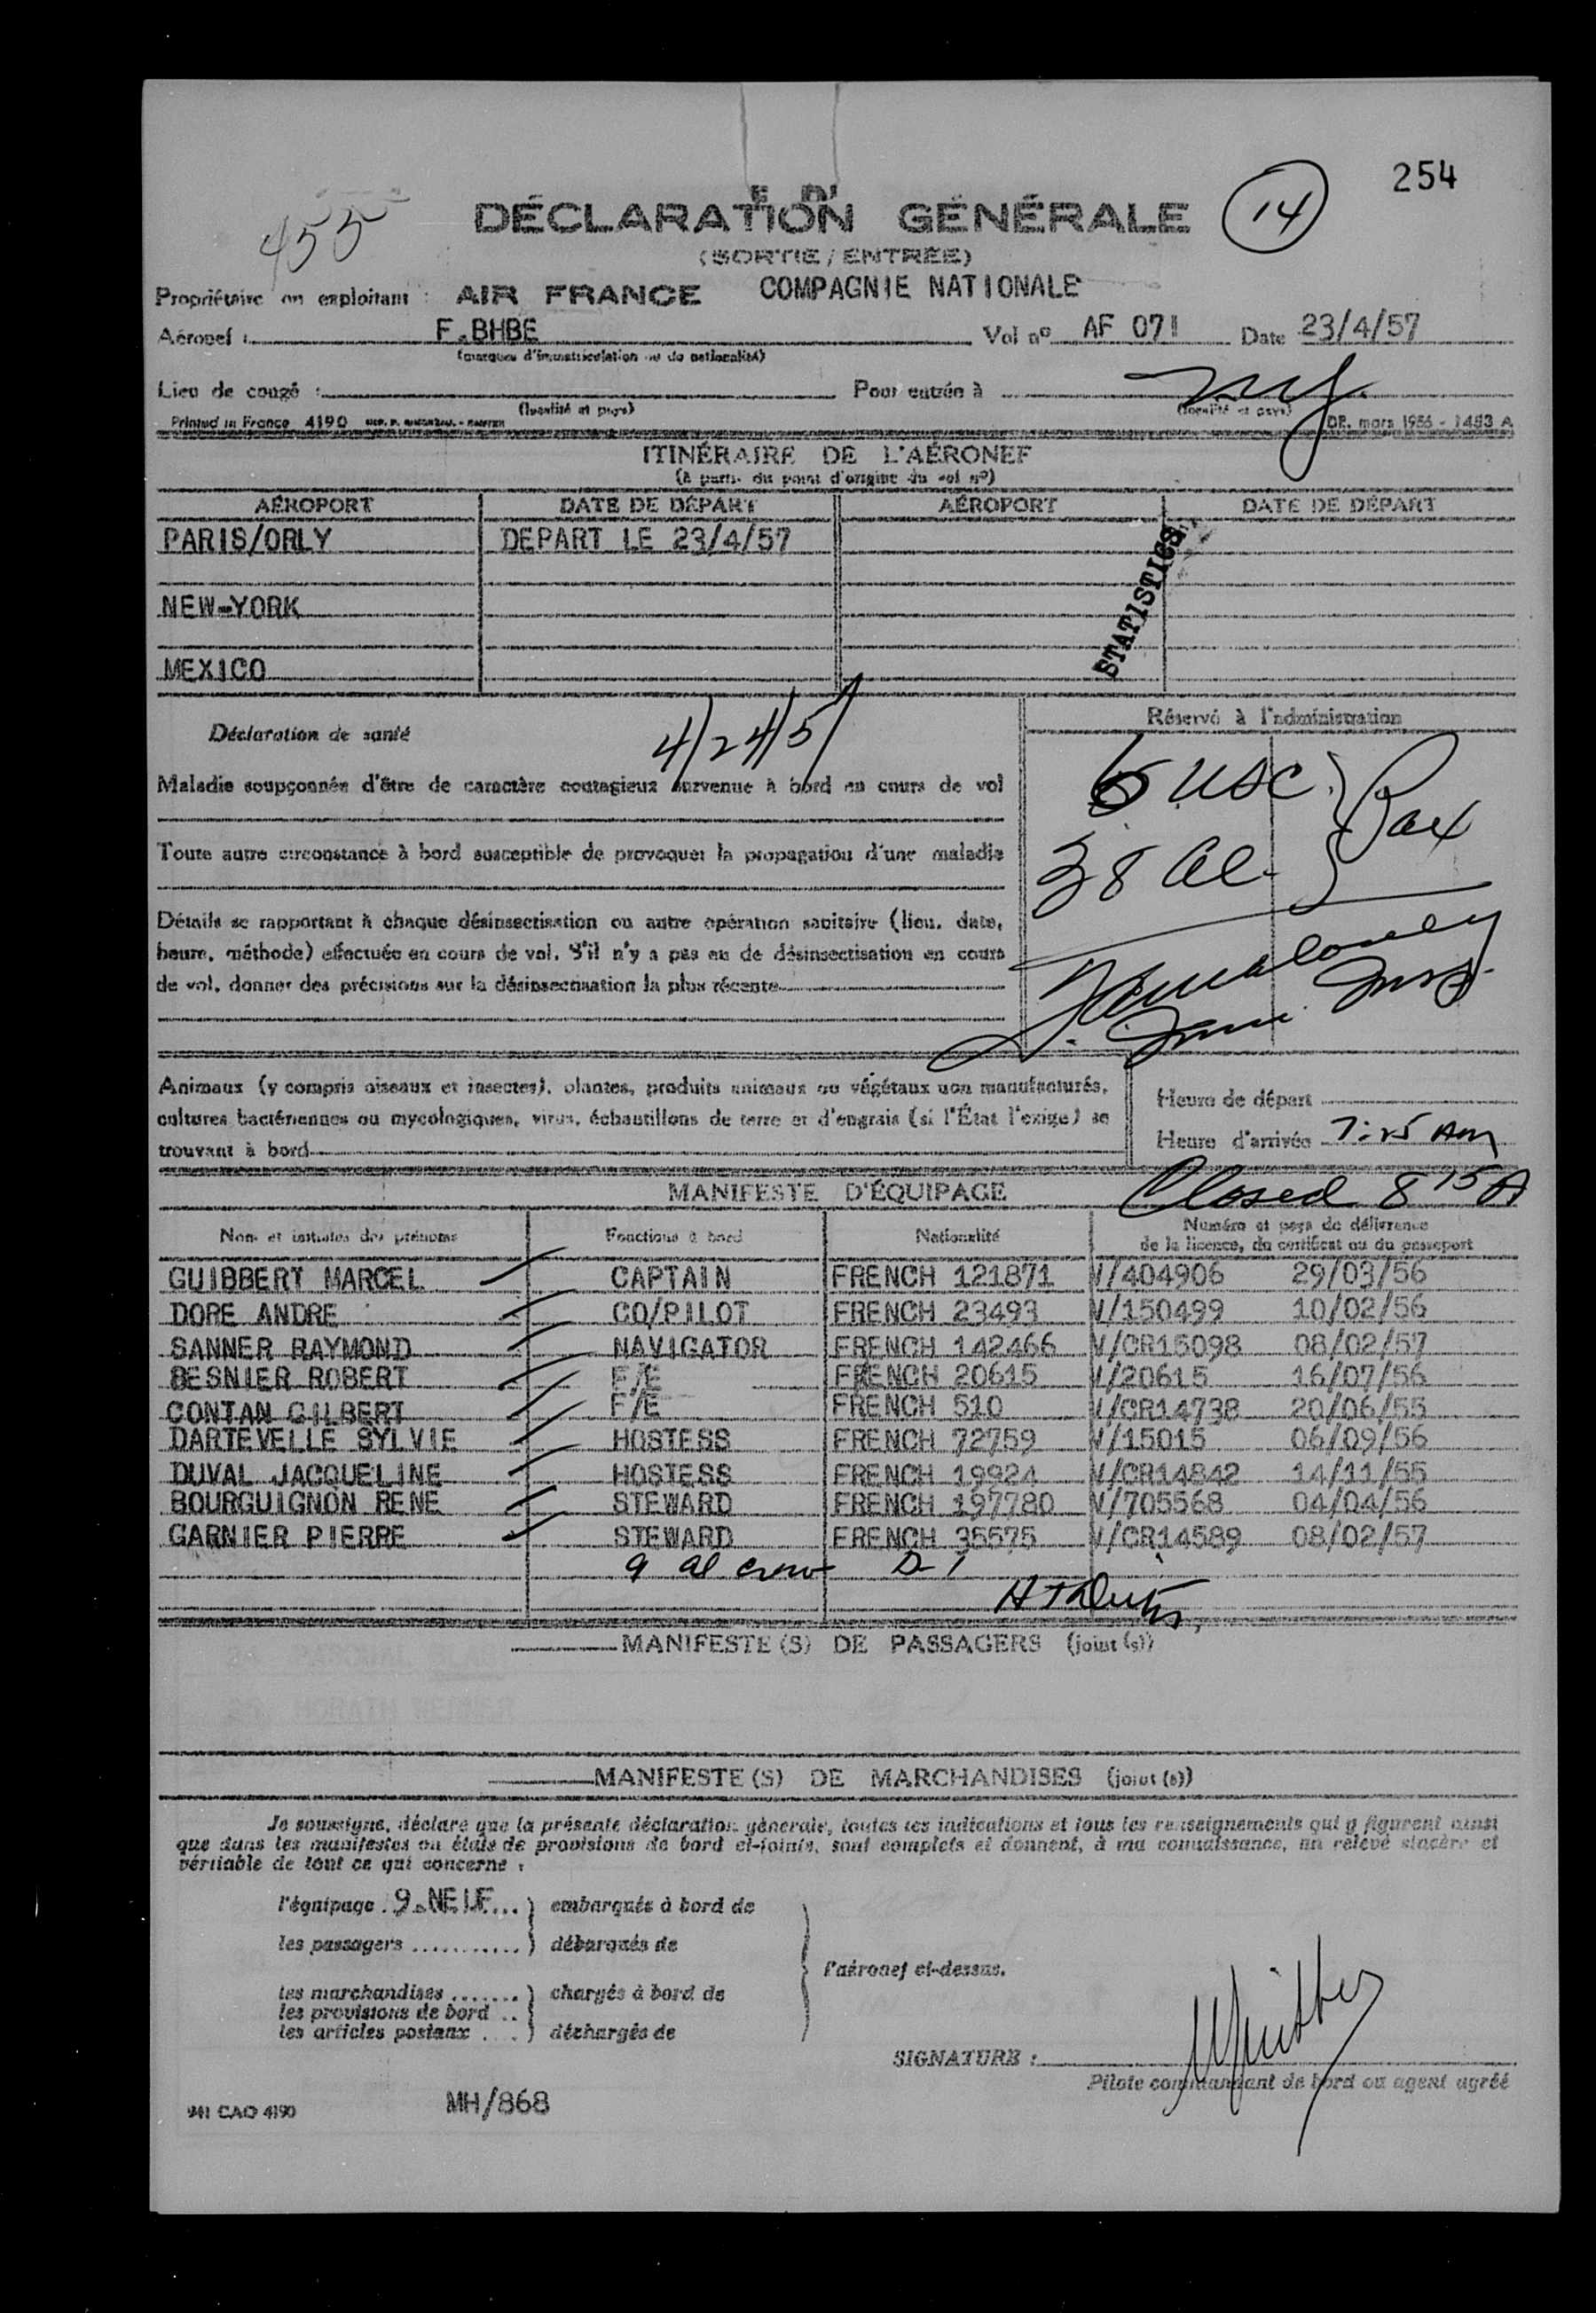 254
455
14
E D'
DÉCLARATION GÉNÉRALE
(SORTIE / ENTRÉE)
Propriétaire ou exploitant : AIR FRANCE COMPAGNIE NATIONALE
Aéronef : F.BHBE Vol nº AF 071 Date 23/4/57
(marques d'immatriculation ou de nationalité)
Lieu de congé : Pour entrée à NY.
(localité et pays) (localité et pays)
Printed in France 4190 DE. mars 1956 - 1483 A
ITINÉRAIRE DE L'AÉRONEF
(à partir du point d'origine du vol nº)
AÉROPORT DATE DE DÉPART AÉROPORT DATE DE DÉPART
PARIS/ORLY DEPART LE 23/4/57
STATISTICS
NEW-YORK
MEXICO
Déclaration de santé
4/24/57
Réservé à l'administration
Maladie soupçonnée d'être de caractère contagieux survenue à bord au cours de vol
6 USC } Pax
Toute autre circonstance à bord susceptible de provoquer la propagation d'une maladie
38 Al.
Détails se rapportant à chaque désinsectisation ou autre opération sanitaire (lieu, date,
heure, méthode) effectuée en cours de vol. S'il n'y a pas eu de désinsectisation en cours
de vol, donner des précisions sur la désinsectisation la plus récente
Animaux (y compris oiseaux et insectes), plantes, produits animaux ou végétaux non manufacturés,
cultures bactériennes ou mycologiques, virus, échantillons de terre et d'engrais (si l'État l'exige) se
trouvant à bord
Heure de départ
Heure d'arrivée 7:25 AM
Closed 8 15 A
MANIFESTE D'ÉQUIPAGE
Nom et initiales des prénoms Fonctions à bord Nationalité Numéro et pays de délivrance
de la licence, du certificat ou du passeport
GUIBBERT MARCEL CAPTAIN FRENCH 121871 V/404906 29/03/56
DORE ANDRE CO/PILOT FRENCH 23493 V/150499 10/02/56
SANNER RAYMOND NAVIGATOR FRENCH 142466 V/CR15098 08/02/57
BESNIER ROBERT F/E FRENCH 20615 V/20615 16/07/56
CONTAN GILBERT F/E FRENCH 510 V/CR14738 20/06/55
DARTEVELLE SYLVIE HOSTESS FRENCH 72759 V/15015 06/09/56
DUVAL JACQUELINE HOSTESS FRENCH 19924 V/CR14842 14/11/55
BOURGUIGNON RENE STEWARD FRENCH 197780 V/705568 04/04/56
GARNIER PIERRE STEWARD FRENCH 35575 V/CR14589 08/02/57
9 al crew D-1
MANIFESTE(S) DE PASSAGERS (joint(s))
MANIFESTE(S) DE MARCHANDISES (joint(s))
Je soussigné, déclare que la présente déclaration générale, toutes les indications et tous les renseignements qui y figurent ainsi
que dans les manifestes ou états de provisions de bord ci-joints, sont complets et donnent, à ma connaissance, un relevé sincère et
véritable de tout ce qui concerne :
l'équipage 9. NEUF ... } embarqués à bord de
les passagers ........... } débarqués de
l'aéronef ci-dessus.
les marchandises ....... } chargés à bord de
les provisions de bord ..
les articles postaux .... } déchargés de
SIGNATURE :
Pilote commandant de bord ou agent agréé
941 CAO 4190 MH/868